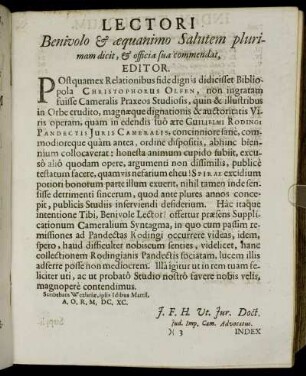 LECTORI
Benivolo & æquanimo Salutem pluri-
mam dicit, & officia sua commendat,
EDITOR.
POstquam ex Relationibus fide dignis didicisset Biblio-
pola CHRISTOPHORUS OLFEN, non ingratam
fuisse Cameralis Praxeos Studiosis, quin & illustribus
in Orbe erudito, magnæque dignationis & auctoritatis Vi-
ris operam, quam in edendis suo ære GUILIELMI RODINGI
PANDECTIS JURIS CAMERALIS, concinniore sane, com-
modioreque quàm antea, ordine dispositis, abhinc bien-
nium collocaverat: honesta animum cupido subiit, excu-
so aliô quodam opere, argumenti non dissimilis, publicè
testatum facere, quamvis nefarium eheu! SPIRÆ excidium
potiori bonorum parte illum exuerit, nihil tamen inde ses-
tisse detrimenti sincerum, quod ante plures annos conce-
pit, publicis Studiis inserviendi desiderium. Hâc itaque
intentione Tibi, Benivole Lector! offertur præsens Suppli-
cationum Cameralium Syntagma, in quo cum passim re-
missiones ad Pandectas Rodingi occurrere videas, idem,
spero, haud difficulter nobiscum senties, videlicet, hanc
collectionem Rodingianis Pandectis sociatam, lucem illis
adferre posse non mediocrem. Illâ igitur ut in rem tuam fe-
liciter uti, ac ut probatô Studio nostrô favere nobis velis,
magnopere contendimus.
ipsis Idibus Martii.
A, O, R, M, DC, XC.
J. F. H. Ut. Jur. Doct.
Jud. Imp. Cam. Advocatus.
)( 3 INDEX